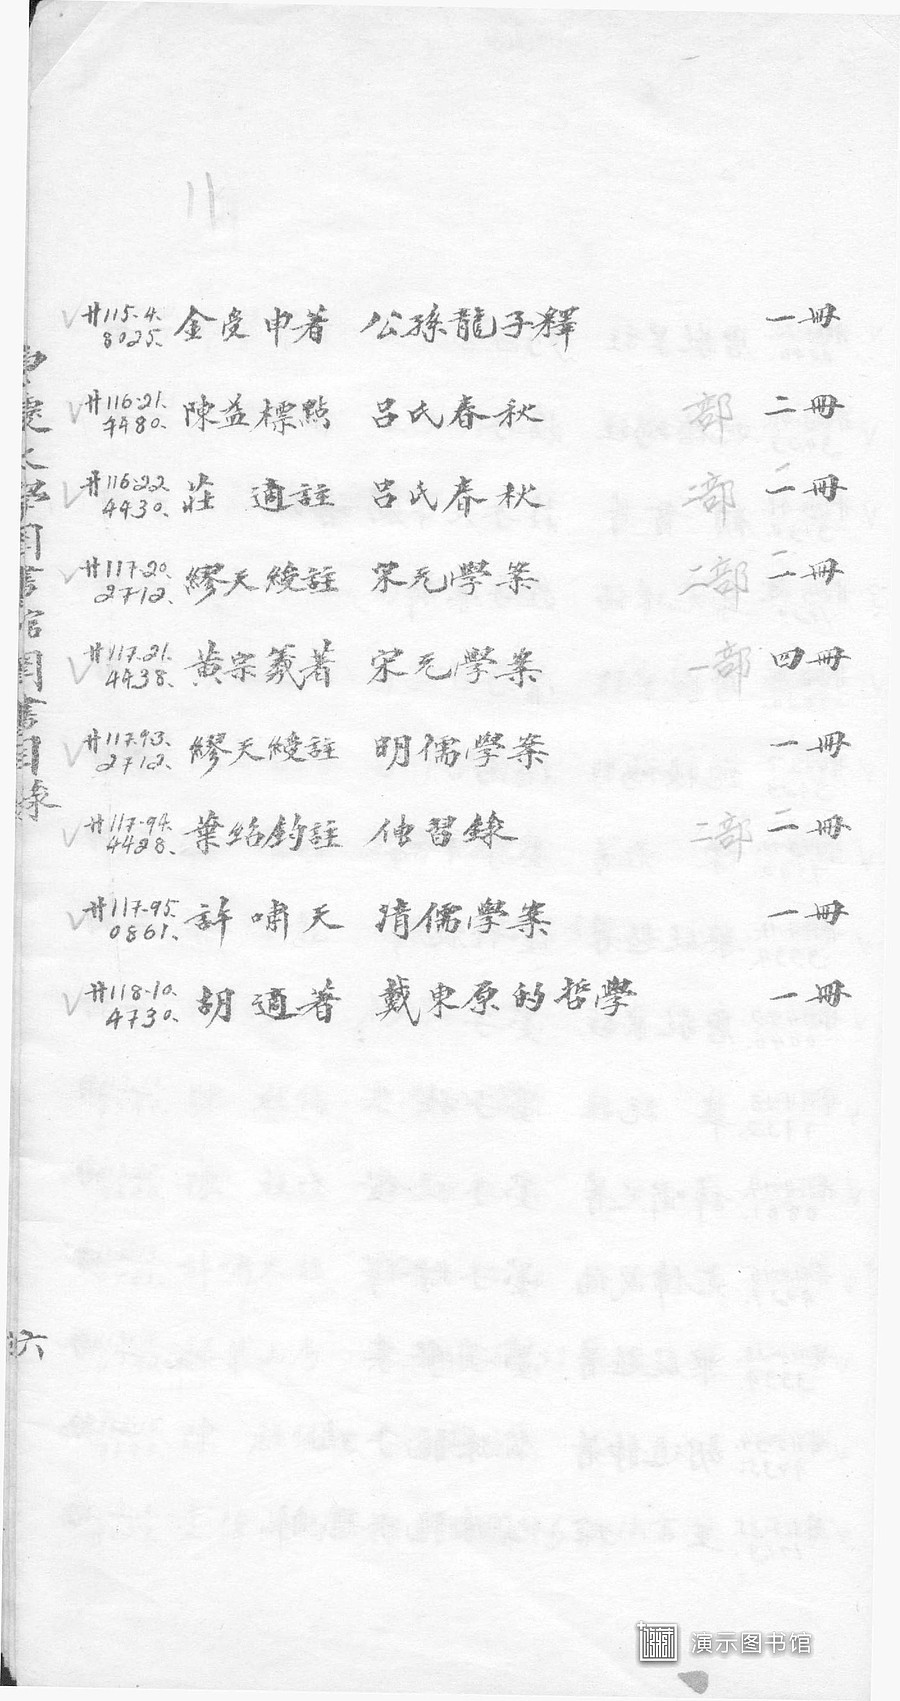 11
廿115.4. 8025. 金受申著 公孫龍子釋 一冊
廿116.21. 4480. 陳益標點 呂氏春秋 部 二冊
廿116.22. 4430. 莊適註 呂氏春秋 部 一冊
廿117.20. 2712. 繆天綬註 宋元學案 二部 一冊
廿117.21. 4438. 黃宗羲著 宋元學案 一部 四冊
廿117.93. 2712. 繆天綬註 明儒學案 一冊
廿117.94. 4428. 葉紹鈞註 傳習錄 二部 二冊
廿117.95. 0861. 許嘯天 清儒學案 一冊
廿118.10. 4730. 胡適著 戴東原的哲學 一冊
大學圖書館圖書目錄
六
演示图书馆